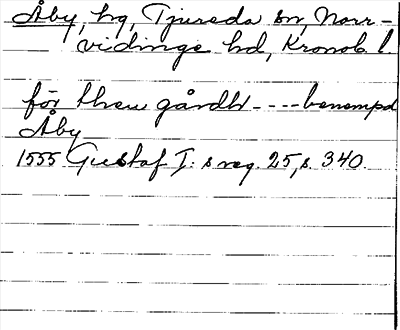 Åby, hg, Tjureda sn, Norr-
vidinge hd, Kronob. l
för then gårdh ---- benempd
Åby
1555 Gustaf I:s reg. 25, s. 340